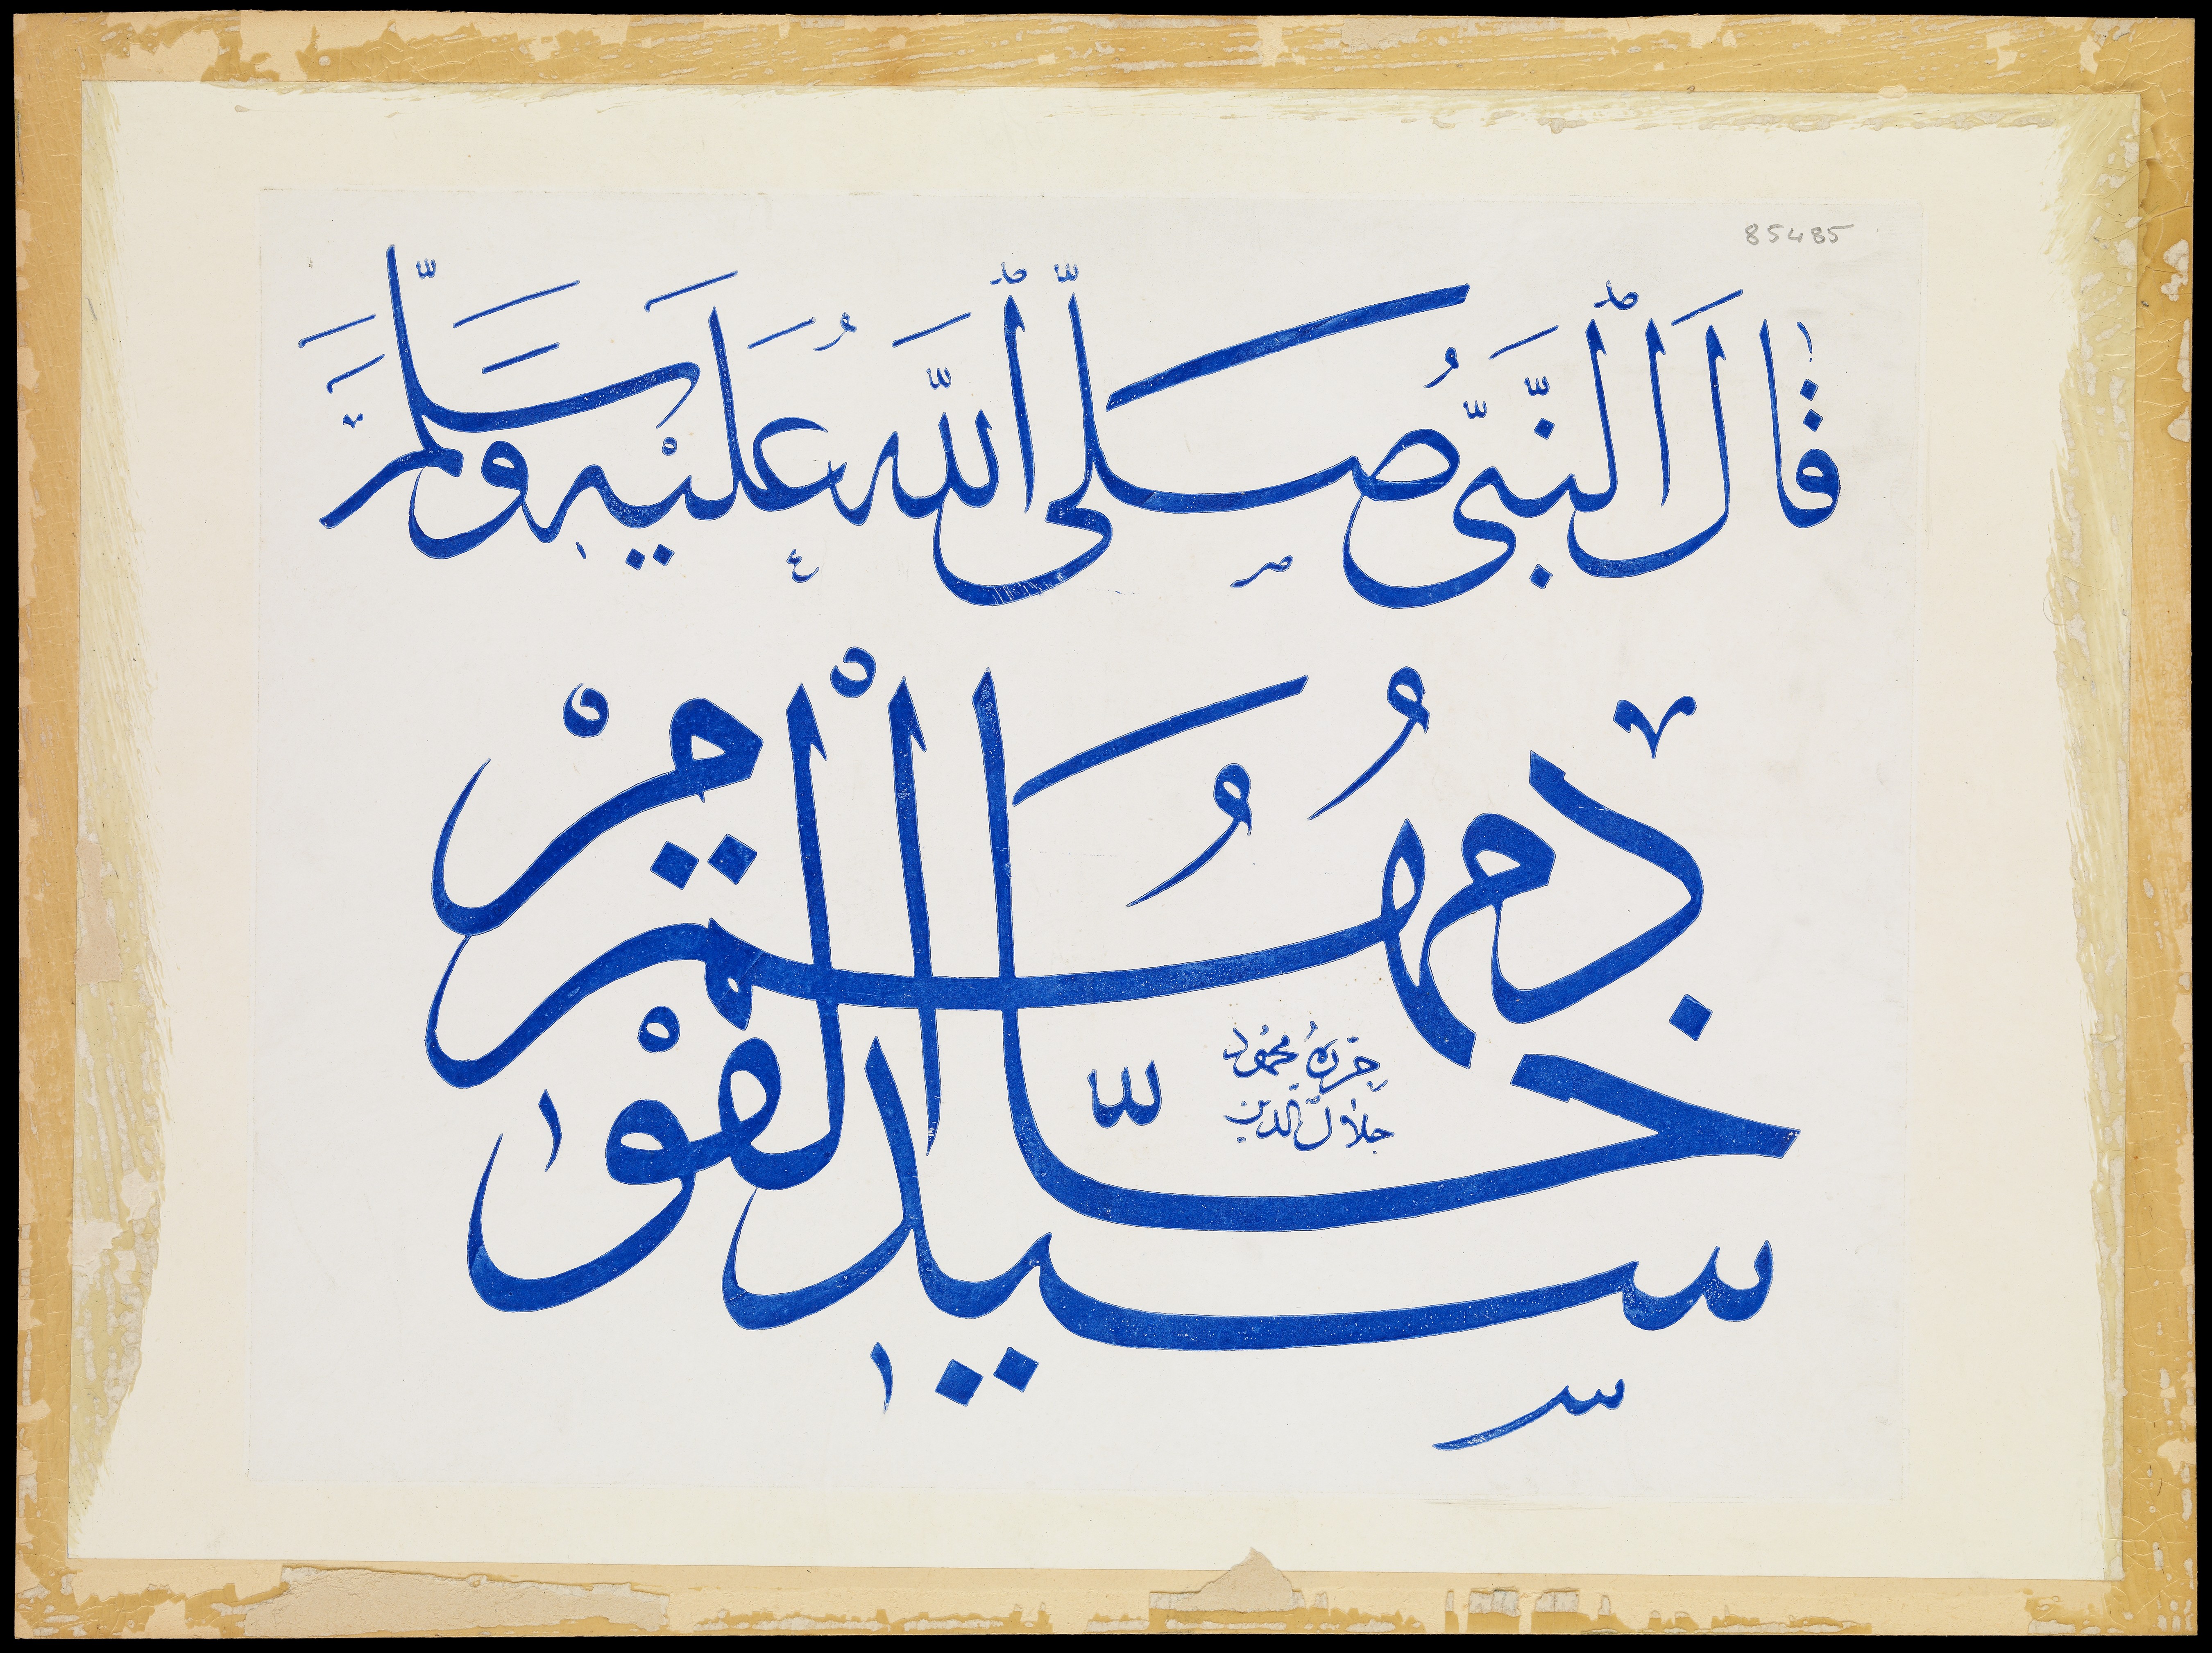 85485
قال النبي صلى الله عليه وسلم
سيد القوم خادمهم
حرره محمود
جلال الدين